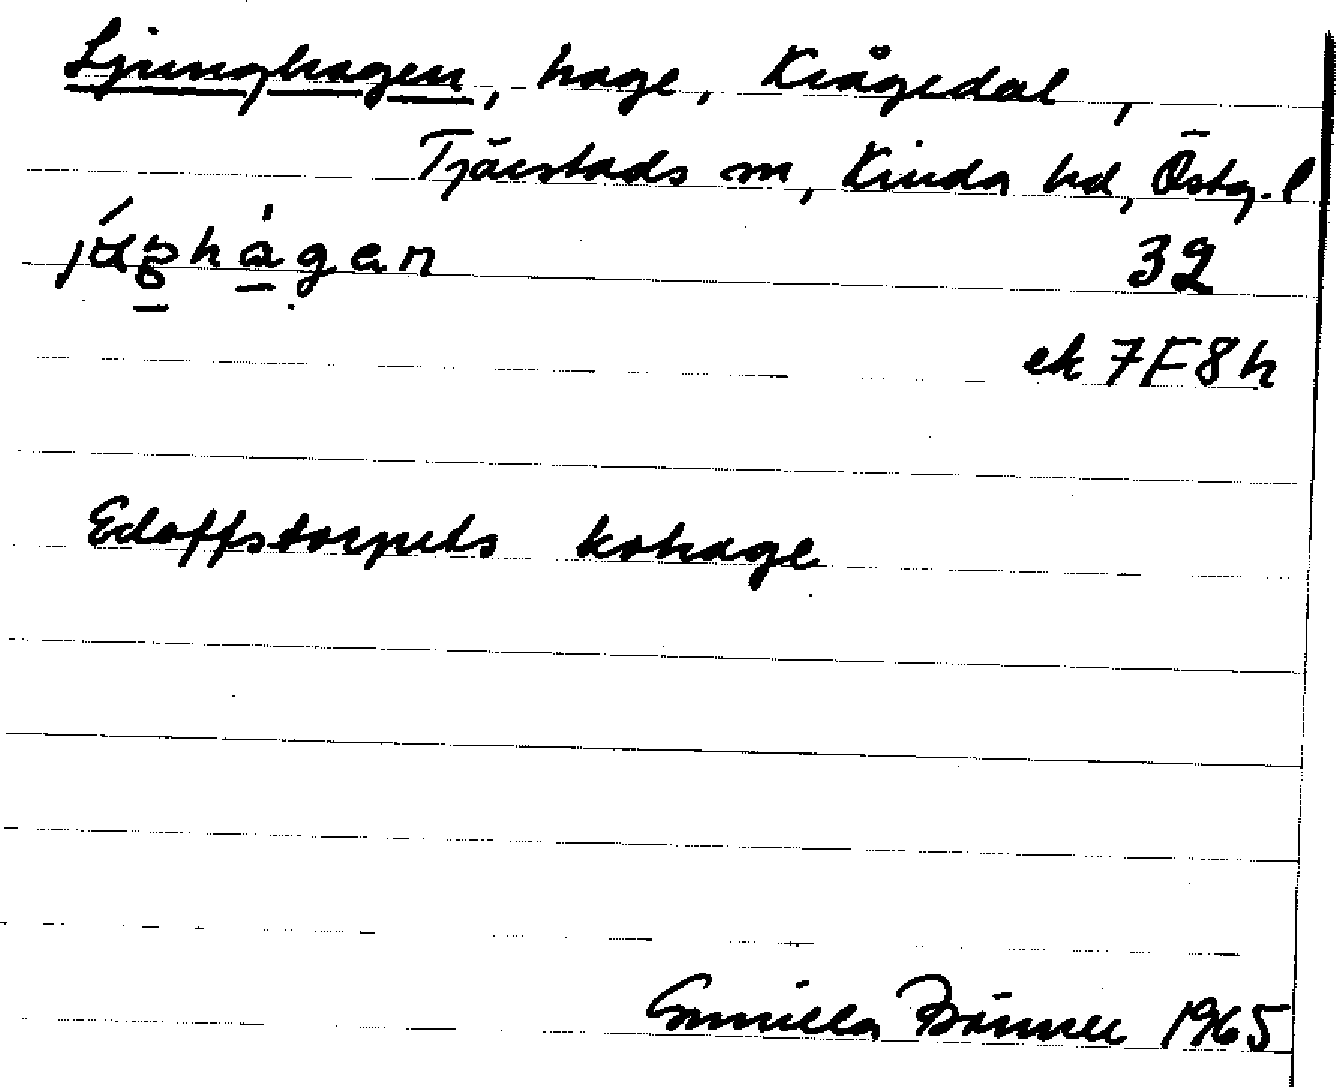 Ljunghagen, hage, Krågedal,
Tjärstads sn, Kinda hd, Östg. l
32
ek 7F8h
Edoffstorpets kohage
Gunilla 1965